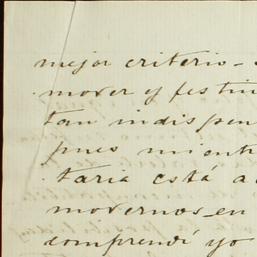 mejor criterio -
mover y festin
tan indispen
pues mient
taria está a
movernos - en
comprendí yo